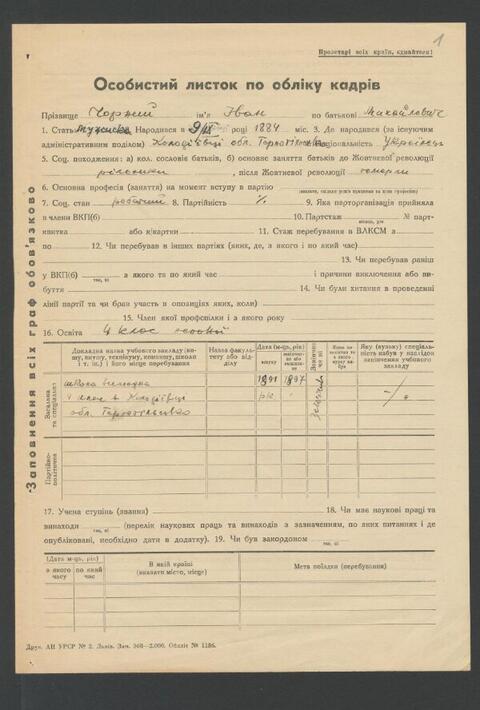 1
Пролетарі всіх країн, єднайтеся!
Особистий листок по обліку кадрів
Прізвище Чорний ім'я Іван по батькові Михайлович
1. Стать мужська Народився в 9/ІХ році 1884 міс. 3. Де народився (за існуючим
адміністративним поділом) обл. Національність Українець
5. Соц. походження: а) кол. сословія батьків, б) основне заняття батьків до Жовтневої революції
, після Жовтневої революції
6. Основна професія (заняття) на момент вступу в партію
7. Соц. стан робочий 8. Партійність б/п 9. Яка парторганізація прийняла
в члени ВКП(б) 10. Партстаж № парт-
квитка або к/картки 11. Стаж перебування в ВЛКСМ з
по 12. Чи перебував в інших партіях (яких, де, з якого і по який час)
13. Чи перебував раніш
у ВКП(б) з якого та по який час і причини виключення або ви-
буття 14. Чи були хитання в проведенні
лінії партії та чи брав участь в опозиціях яких, коли)
15. Член якої профспілки і з якого року
16. Освіта 4 клас
Докладна назва учбового закладу (ви-
шу, втузу, технікуму, комвишу, школи
і т. ін.) і його місце перебування
Назва факуль-
тету або від-
ділу
Дата (м-ць, рік)
вступу
Яку (вузьку) спеціаль-
ність набув у наслідок
закінчення учбового
закладу
Загальна
та спеціальн.
школа
1891 1897
4 клас в
обл.
Партійно-
політична
17. Учена ступінь (звання) 18. Чи має наукові праці та
винаходи (перелік наукових праць та винаходів з зазначенням, по яких питаннях і де
опубліковані, необхідно дати в додатку). 19. Чи був закордоном
(Дата м-ць, рік)
з якого
часу
по який
час
В якій країні
(вказати місто, місце)
Мета поїздки (перебування)
Друк. АН УРСР № 2. Львів. Зам. 368—2.000. Обліт № 1186.
Заповнення всіх граф обов'язково